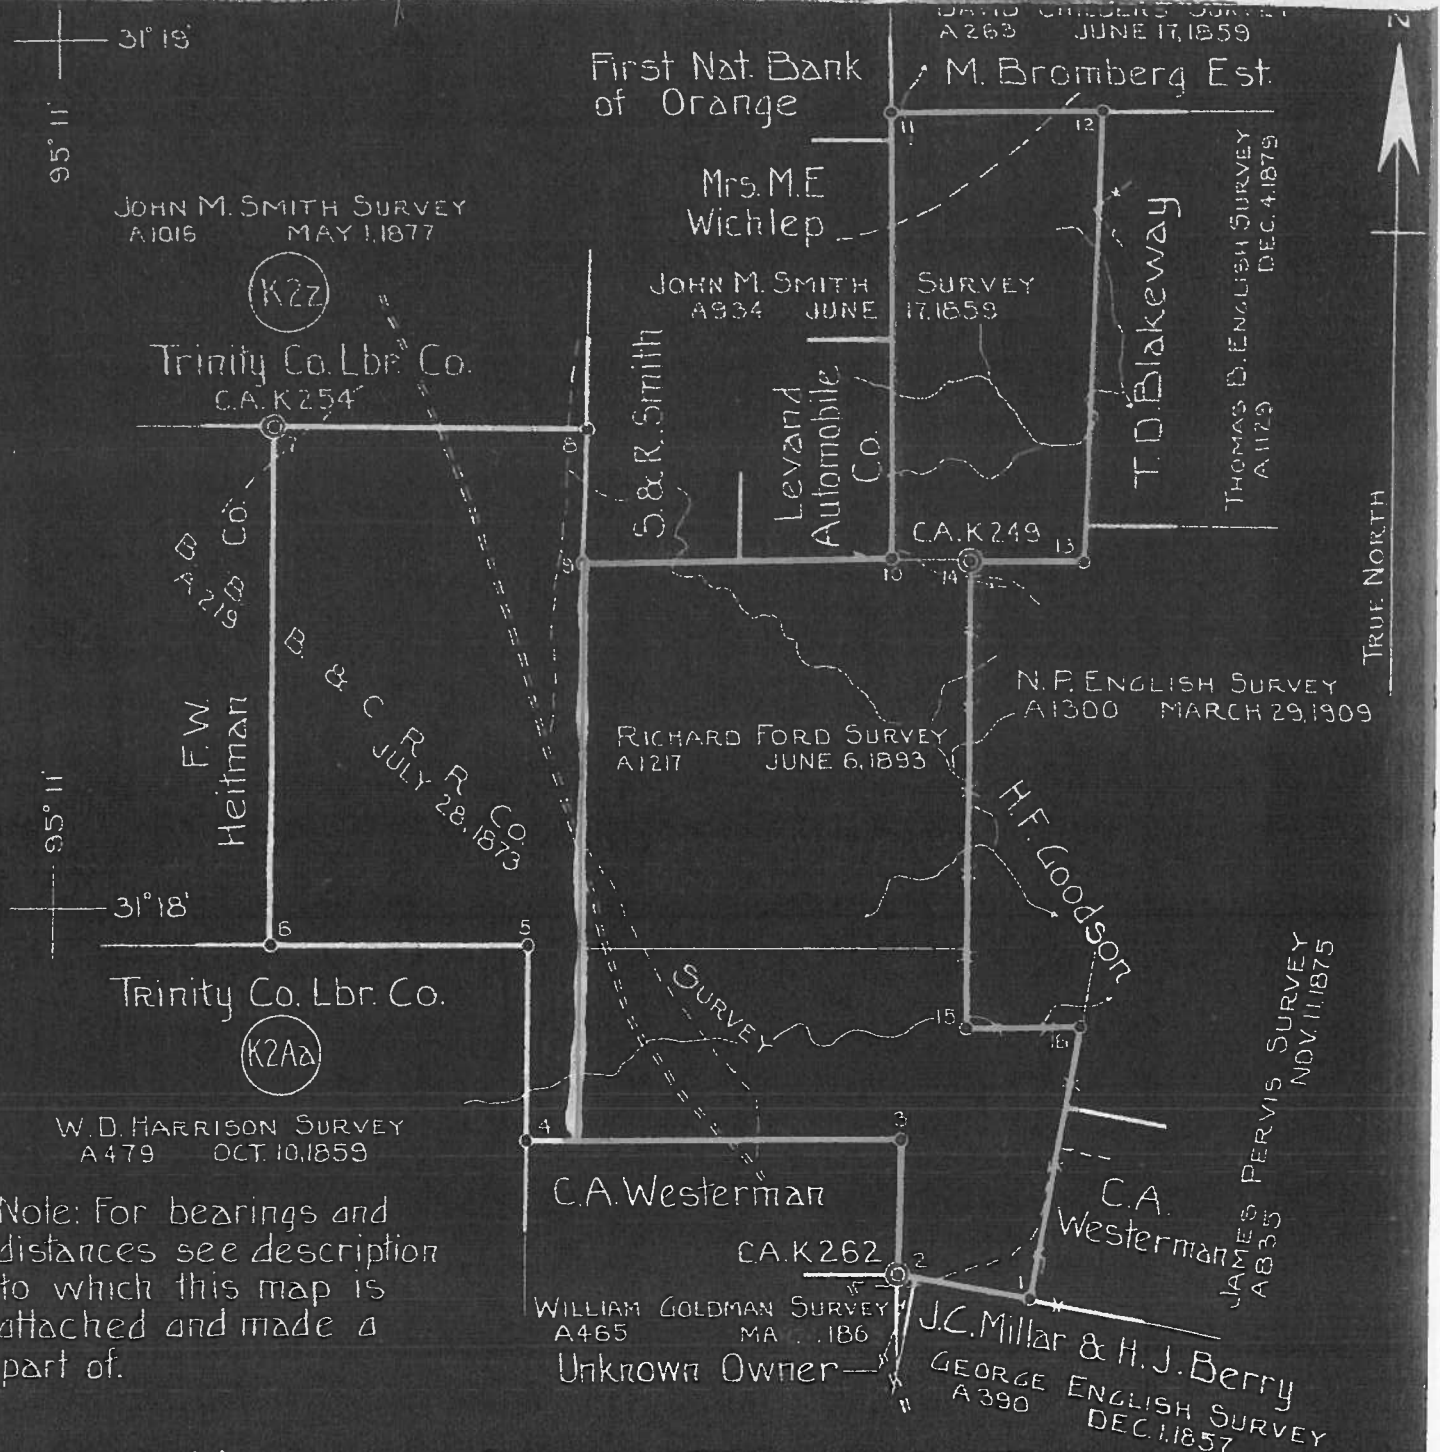 31° 19'
95° 11'
DAVID CHILDERS SURVEY
A263 JUNE 17, 1859
N
First Nat. Bank
of Orange
M. Bromberg Est.
11
12
Mrs. M.E
Wichlep
JOHN M. SMITH SURVEY
A1016 MAY 1, 1877
K2z
Trinity Co. Lbr. Co.
C.A. K254
7
8
JOHN M. SMITH SURVEY
A934 JUNE 17, 1859
S. & R. Smith
Levand
Automobile
Co.
T.D. Blakeway
THOMAS B. ENGLISH SURVEY
A1129 DEC. 4, 1879
TRUE NORTH
C.A. K249
9
10
14
13
B B B Co.
A 219
B. & C R R Co.
JULY 28, 1873
F.W.
Heitman
N.P. ENGLISH SURVEY
A1300 MARCH 29, 1909
RICHARD FORD SURVEY
A1217 JUNE 6, 1893
H.F. Goodson
95° 11'
31° 18'
6
5
Trinity Co. Lbr. Co.
K2Aa
SURVEY
15
16
W.D. HARRISON SURVEY
A479 OCT. 10, 1859
4
3
JAMES PERVIS SURVEY
A835 NOV. 11, 1875
C.A. Westerman
C.A.
Westerman
Note: For bearings and
distances see description
to which this map is
attached and made a
part of.
C.A. K262
2
1
WILLIAM GOLDMAN SURVEY
A465 MA . . 186
Unknown Owner
J.C. Millar & H.J. Berry
GEORGE ENGLISH SURVEY
A390 DEC. 1, 1857